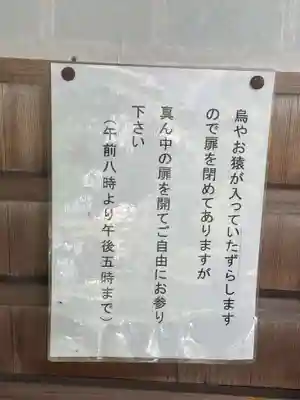 烏やお猿が入っていたずらします
ので扉を閉めてありますが
真ん中の扉を開てご自由にお参り
下さい
（午前八時より午後五時まで）